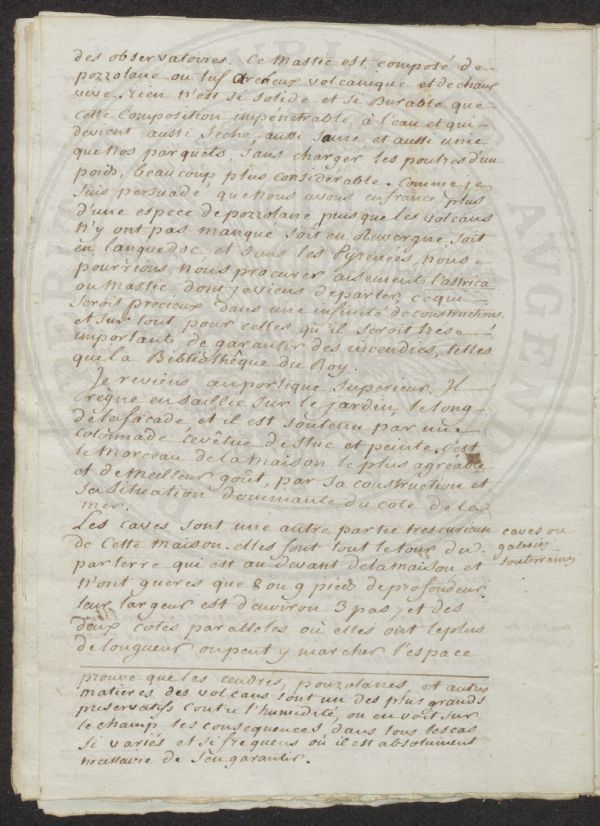 des observatoires. Ce Mastic est composé de
pozzolane ou tuf volcanique et de chaux
vive. rien n'est si solide et si Durable que
cette Composition impénétrable à l'eau et qui
devient aussi Seche, aussi Saine et aussi unie
que nos parquets, Sans charger les poutres d'un
poids, beaucoup plus considérable. Comme je
suis persuadé, que Nous avons en france plus
d'une espece de pozzolane, puisque les volcans
n'y ont pas manqué soit en Auvergne, Soit
en languedoc, et dans les Pyrenées, nous
pourrions, nous procurer aisement l'astrico
ou Mastic dont je viens de parler, ce qui
Seroit precieux dans une infinité de constructions,
et Sur tout pour celles qu'il Seroit tres
important de garantir des incendies, telles
que la Bibliothêque du Roy.
Je reviens au portique Superieur. Il
règne en saillie sur le jardin, le long
de la facade et il est soutenu par une
colonnade revêtue de stuc et peinte. C'est
le Morceau de la maison le plus agréable
et de Meilleur goût, par Sa construction et
Sa Situation dominante du coté de la
mer.
Les caves sont une autre partie tres curieuse
de Cette Maison. elles font tout le tour du
parterre qui est au devant de la maison et
n'ont gueres que 8 ou 9 pieds de profondeur.
leur largeur est d'environ 3 pas, et des
deux cotés paralleles où elles ont le plus
de longueur on peut y marcher l'espace
caves ou
galeries
souterraines
prouve que les cendres, pouzolanes, et autres
matieres des volcans sont un des plus grands
preservatifs contre l'humidité, on en voit sur
le champ les consequences, dans tous les cas
Si variés et si frequens où il est absolument
necessaire de s'en garantir.